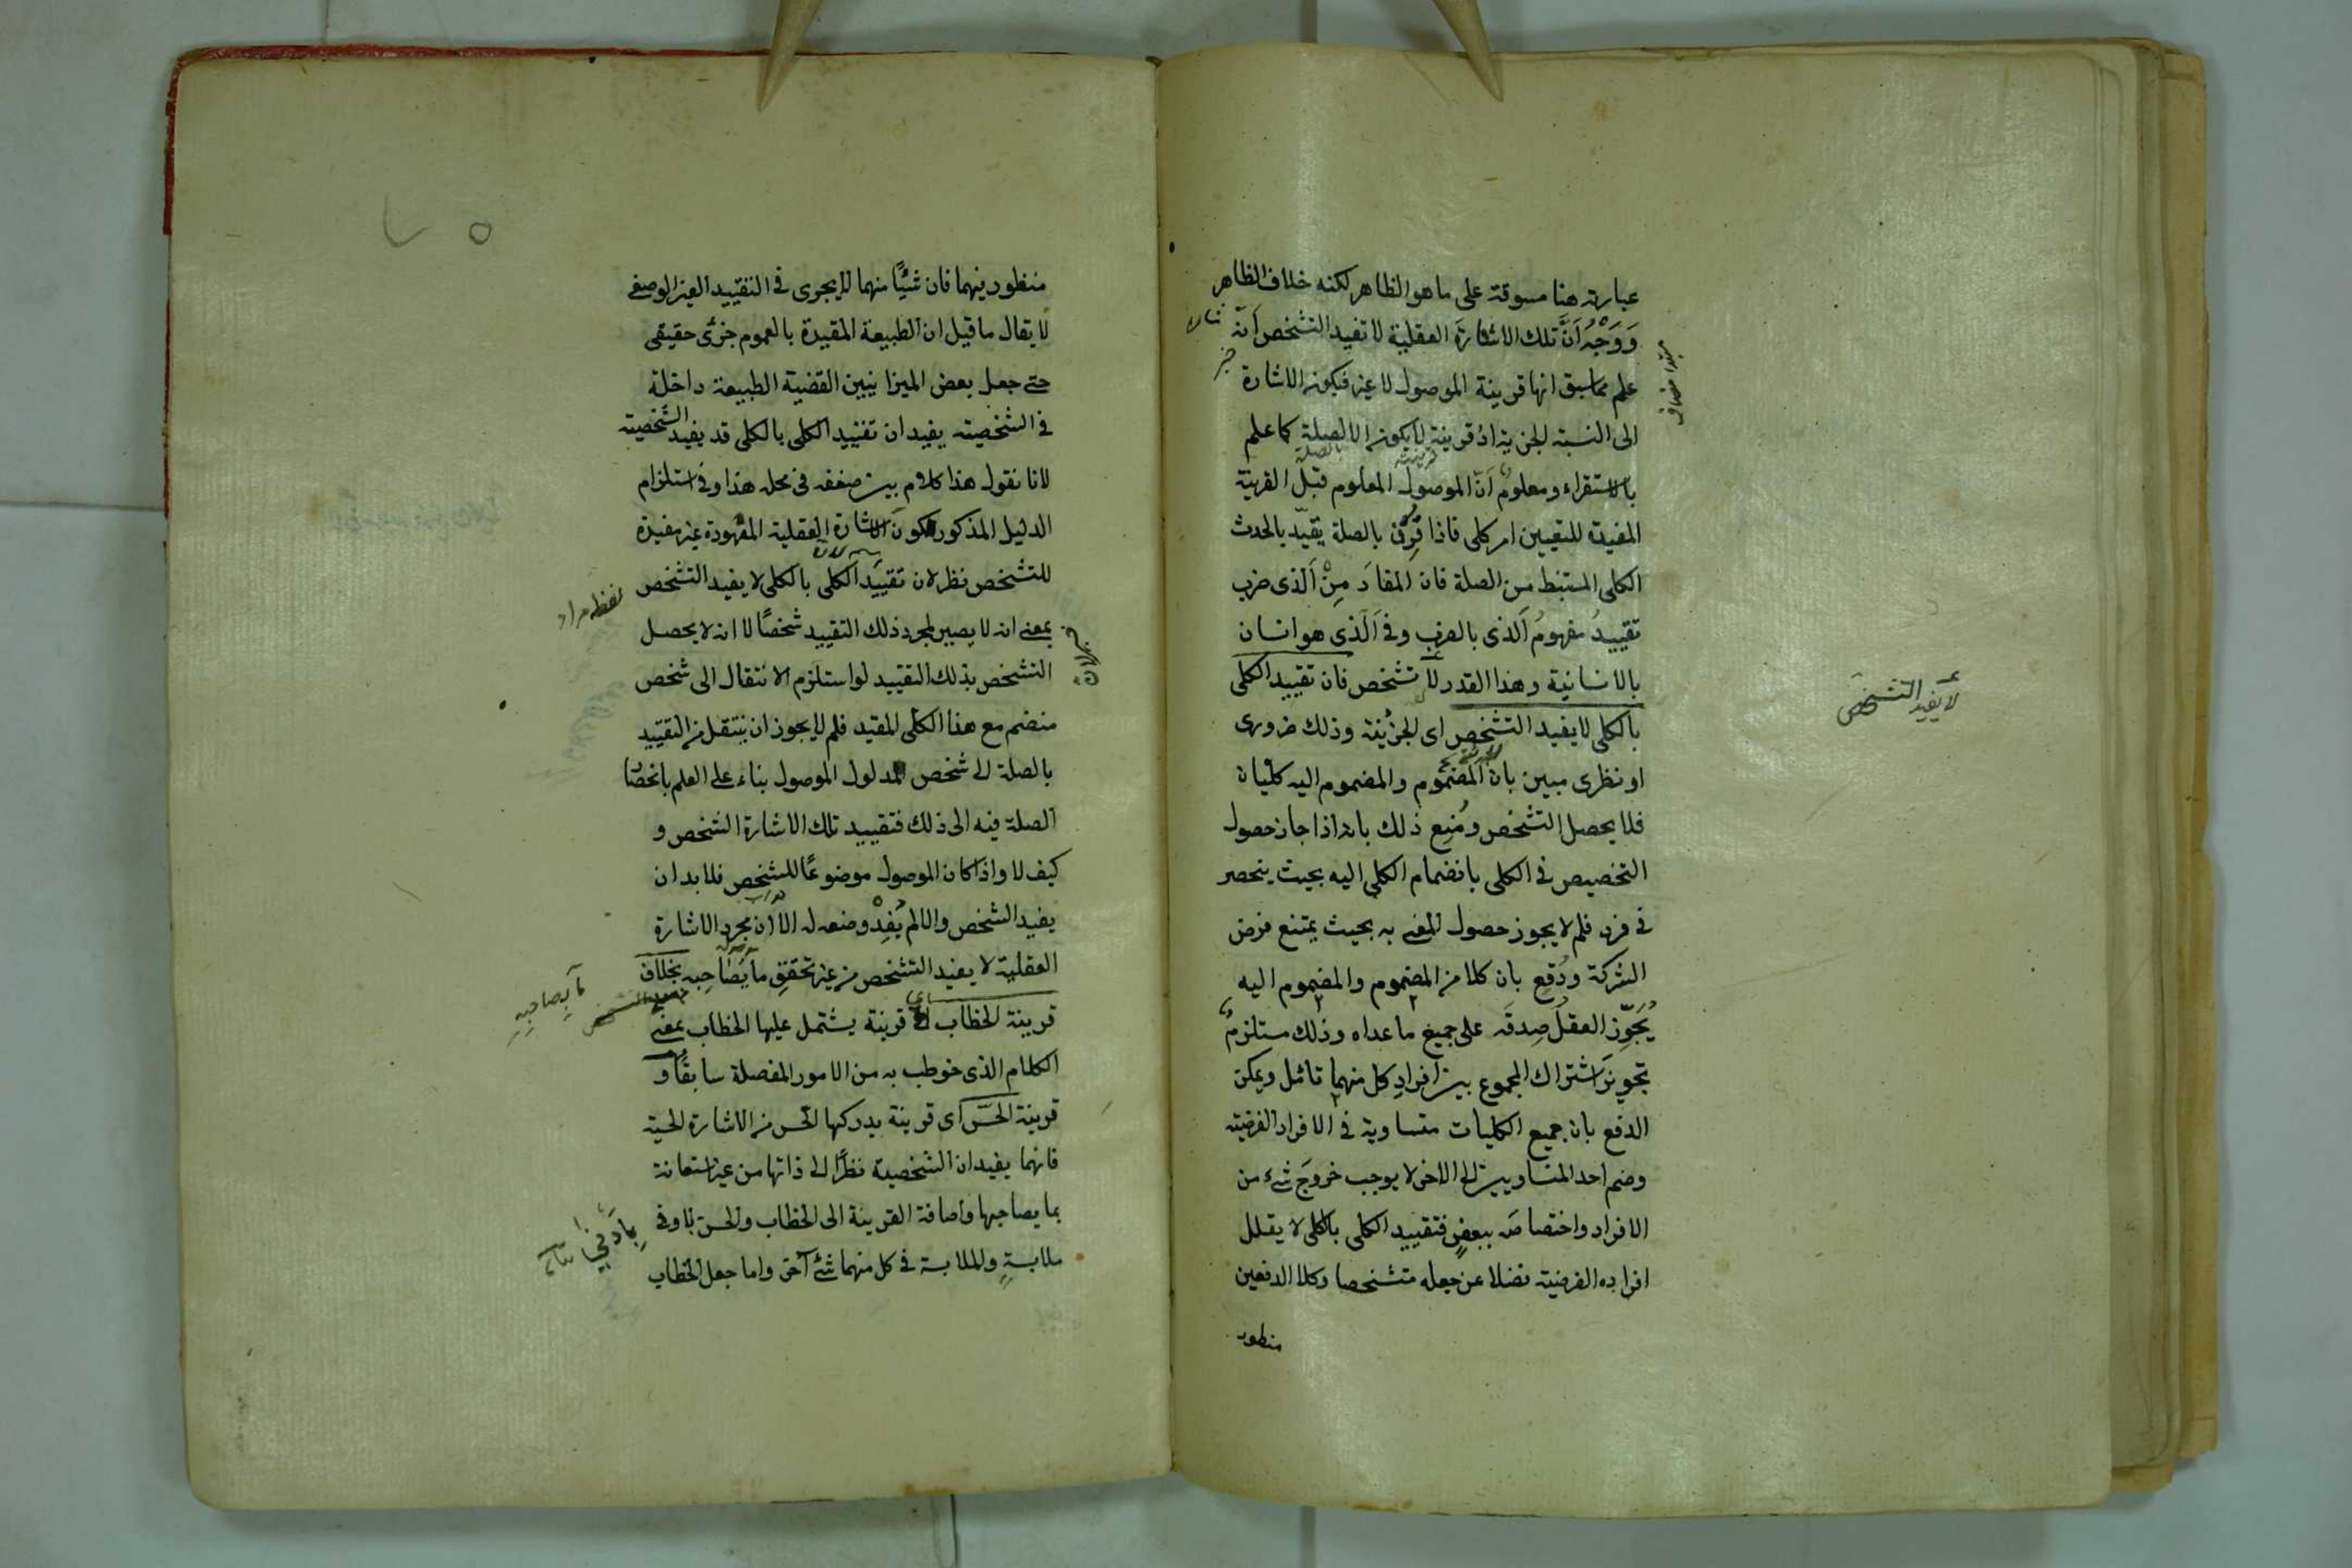 عبارته هنا مسوقة على ما هو الظاهر لكنه خلاف الظاهر
وَوَجْهُ اَنَّ تلك الاشارةَ العقلية لا تفيد التشخص اَنّه
علم مما سبق انها قرينة الموصول لا غير فيكون الاشارة
الى النسبة الجزئية اذ قرينته لا يكون الا الصلة كما علم
بالاستقراء ومعلومٌ اَنّ الموصول المعلوم قبل القرينة
المفيدة للتعيين امر كلى فاذا قُرِن بالصلة يقيّد بالحدث
الكلى المستنبط من الصلة فان المفادَ مِنْ اَلذى ضرب
تقييدُ مفهومُ اَلذى بالضرب وفى اَلّذى هو انسان
بالانسانية وهذا القدر لا تشخص فان تقييد الكلى
بالكلى لا يفيد التشخص اى الجزئية وذلك ضرورى
او نظرى مبين بان المضموم والمضموم اليه كليان
فلا يحصل التشخص ومُنِع ذلك بانه اذا جاز حصول
التخصيص فى الكلى بانضمام الكلى اليه بحيث ينحصر
فى فرد فلم لا يجوز حصول المعنى به بحيث يمتنع فرض
الشركة ودُفِع بان كلا من المضموم والمضموم اليه
يُجَوِّز العقلُ صِدقَه على جميع ما عداه وذلك مستلزمٌ
تجويزَ اشتراك المجموع بين افرادِ كل منهما تأمل ويمكن
الدفع بان جميع الكليات متساوية فى الافراد الفرضية
وضم احد المتساويين الى الاخر لا يوجب خروجَ شئ من
الافراد واختصاصَه ببعضٍ فتقييد الكلى بالكلى لا يقلل
افراده الفرضية فضلا عن جعله متشخصا وكلا الدفعين
منظور
مبتدا مضاف
خبر
قرينته
بالصلة
لا يفيد التشخص
منظور فيهما فان شيئًا منهما لا يجرى فى التقييد الغير الوصفى
لا يقال ما قيل ان الطبيعة المقيدة بالعموم جزئى حقيقى
حتى جعل بعض الميزانيين القضية الطبيعة داخلة
فى الشخصية يفيد ان تقييد الكلى بالكلى قد يفيد الشخصية
لانا نقول هذا كلام بين ضعفه فى محله هذا وفى استلزام
الدليل المذكور لكون الاشارة العقلية المعهودة غير مفيدة
للتشخص نظر لان تقييد الكلى بالكلى لا يفيد التشخص
بمعنى انه لا يصير لمجرد ذلك التقييد شخصًا لا انه لا يحصل
التشخص بذلك التقييد لو استلزم الانتقال الى شخص
منضم مع هذا الكلى المقيد فلم لا يجوز ان ينتقل من التقييد
بالصلة الى شخص لمدلول الموصول بناء على العلم بانحصار
الصلة فيه الى ذلك فتقييد تلك الاشارة الشخص و
كيف لا واذا كان الموصول موضوعًا للشخص فلا بد ان
يفيد الشخص والا لم يُفِدْ وضعه له الا ان مجرد الاشارة
العقلية لا يفيد التشخص من غير تحقق ما يصاحبه بخلاف
قرينة الخطاب اى قرينة يشتمل عليها الخطاب بمعنى
الكلام الذى خوطب به من الامور المفصلة سابقًا و
قرينة الحسّ اى قرينة يدركها الحس من الاشارة الحسية
فانهما يفيدان الشخصية نظرًا الى ذاتها من غير استعانة
بما يصاحبها واضافة القرينة الى الخطاب والحس بادنى
ملابسةٍ والملابسة فى كل منهما شئ آخر واما جعل الخطاب
ما يصاحبه